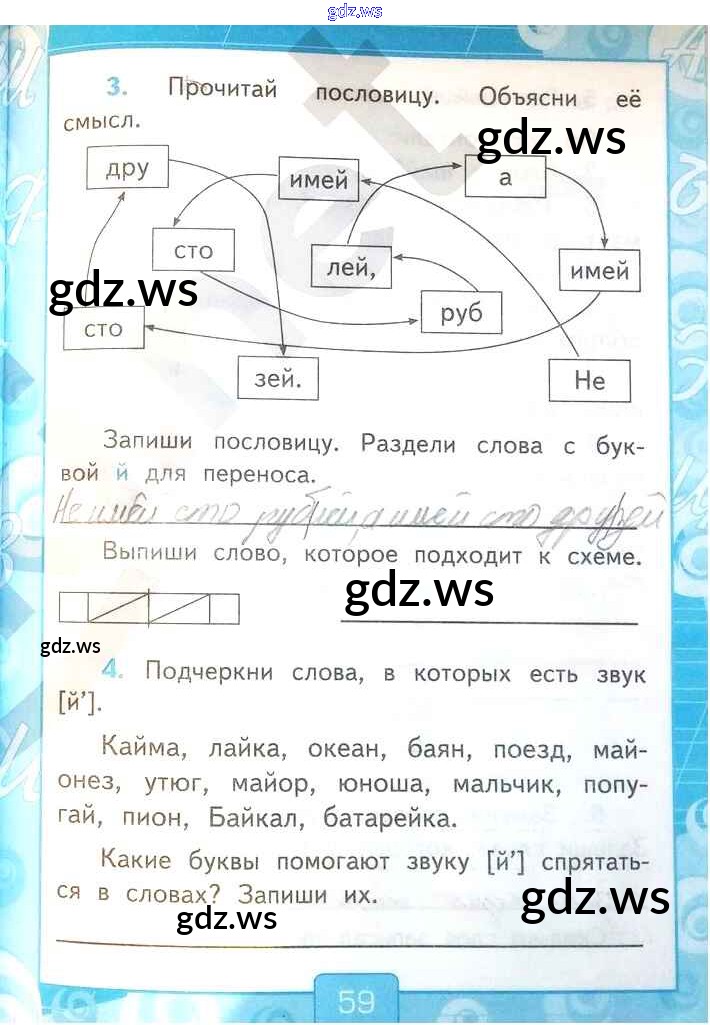 gdz.ws
3. Прочитай пословицу. Объясни её
смысл.
gdz.ws
дру
имей
а
сто
лей,
имей
gdz.ws
руб
сто
зей.
Не
Запиши пословицу. Раздели слова с бук-
вой й для переноса.
Не имей сто руб|лей, а имей сто дру|зей
Выпиши слово, которое подходит к схеме.
gdz.ws
gdz.ws
4. Подчеркни слова, в которых есть звук
[й’].
Кайма, лайка, океан, баян, поезд, май-
онез, утюг, майор, юноша, мальчик, попу-
гай, пион, Байкал, батарейка.
Какие буквы помогают звуку [й’] спрятать-
ся в словах? Запиши их.
gdz.ws
gdz.ws
59